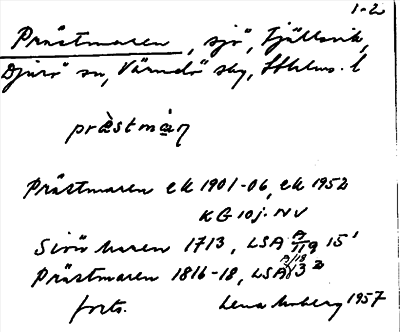 1-2
Prästmaren, sjö, Fjällsvik,
Djurö sn, Värmdö skg, Sthlms. l
præstmàṇ
Prästmaren ek 1901-06, ek 1952
KG 10j. NV
maren 1713, LSA A/119 15¹
Prästmaren 1816-18, LSA
forts. Lena Moberg 1957